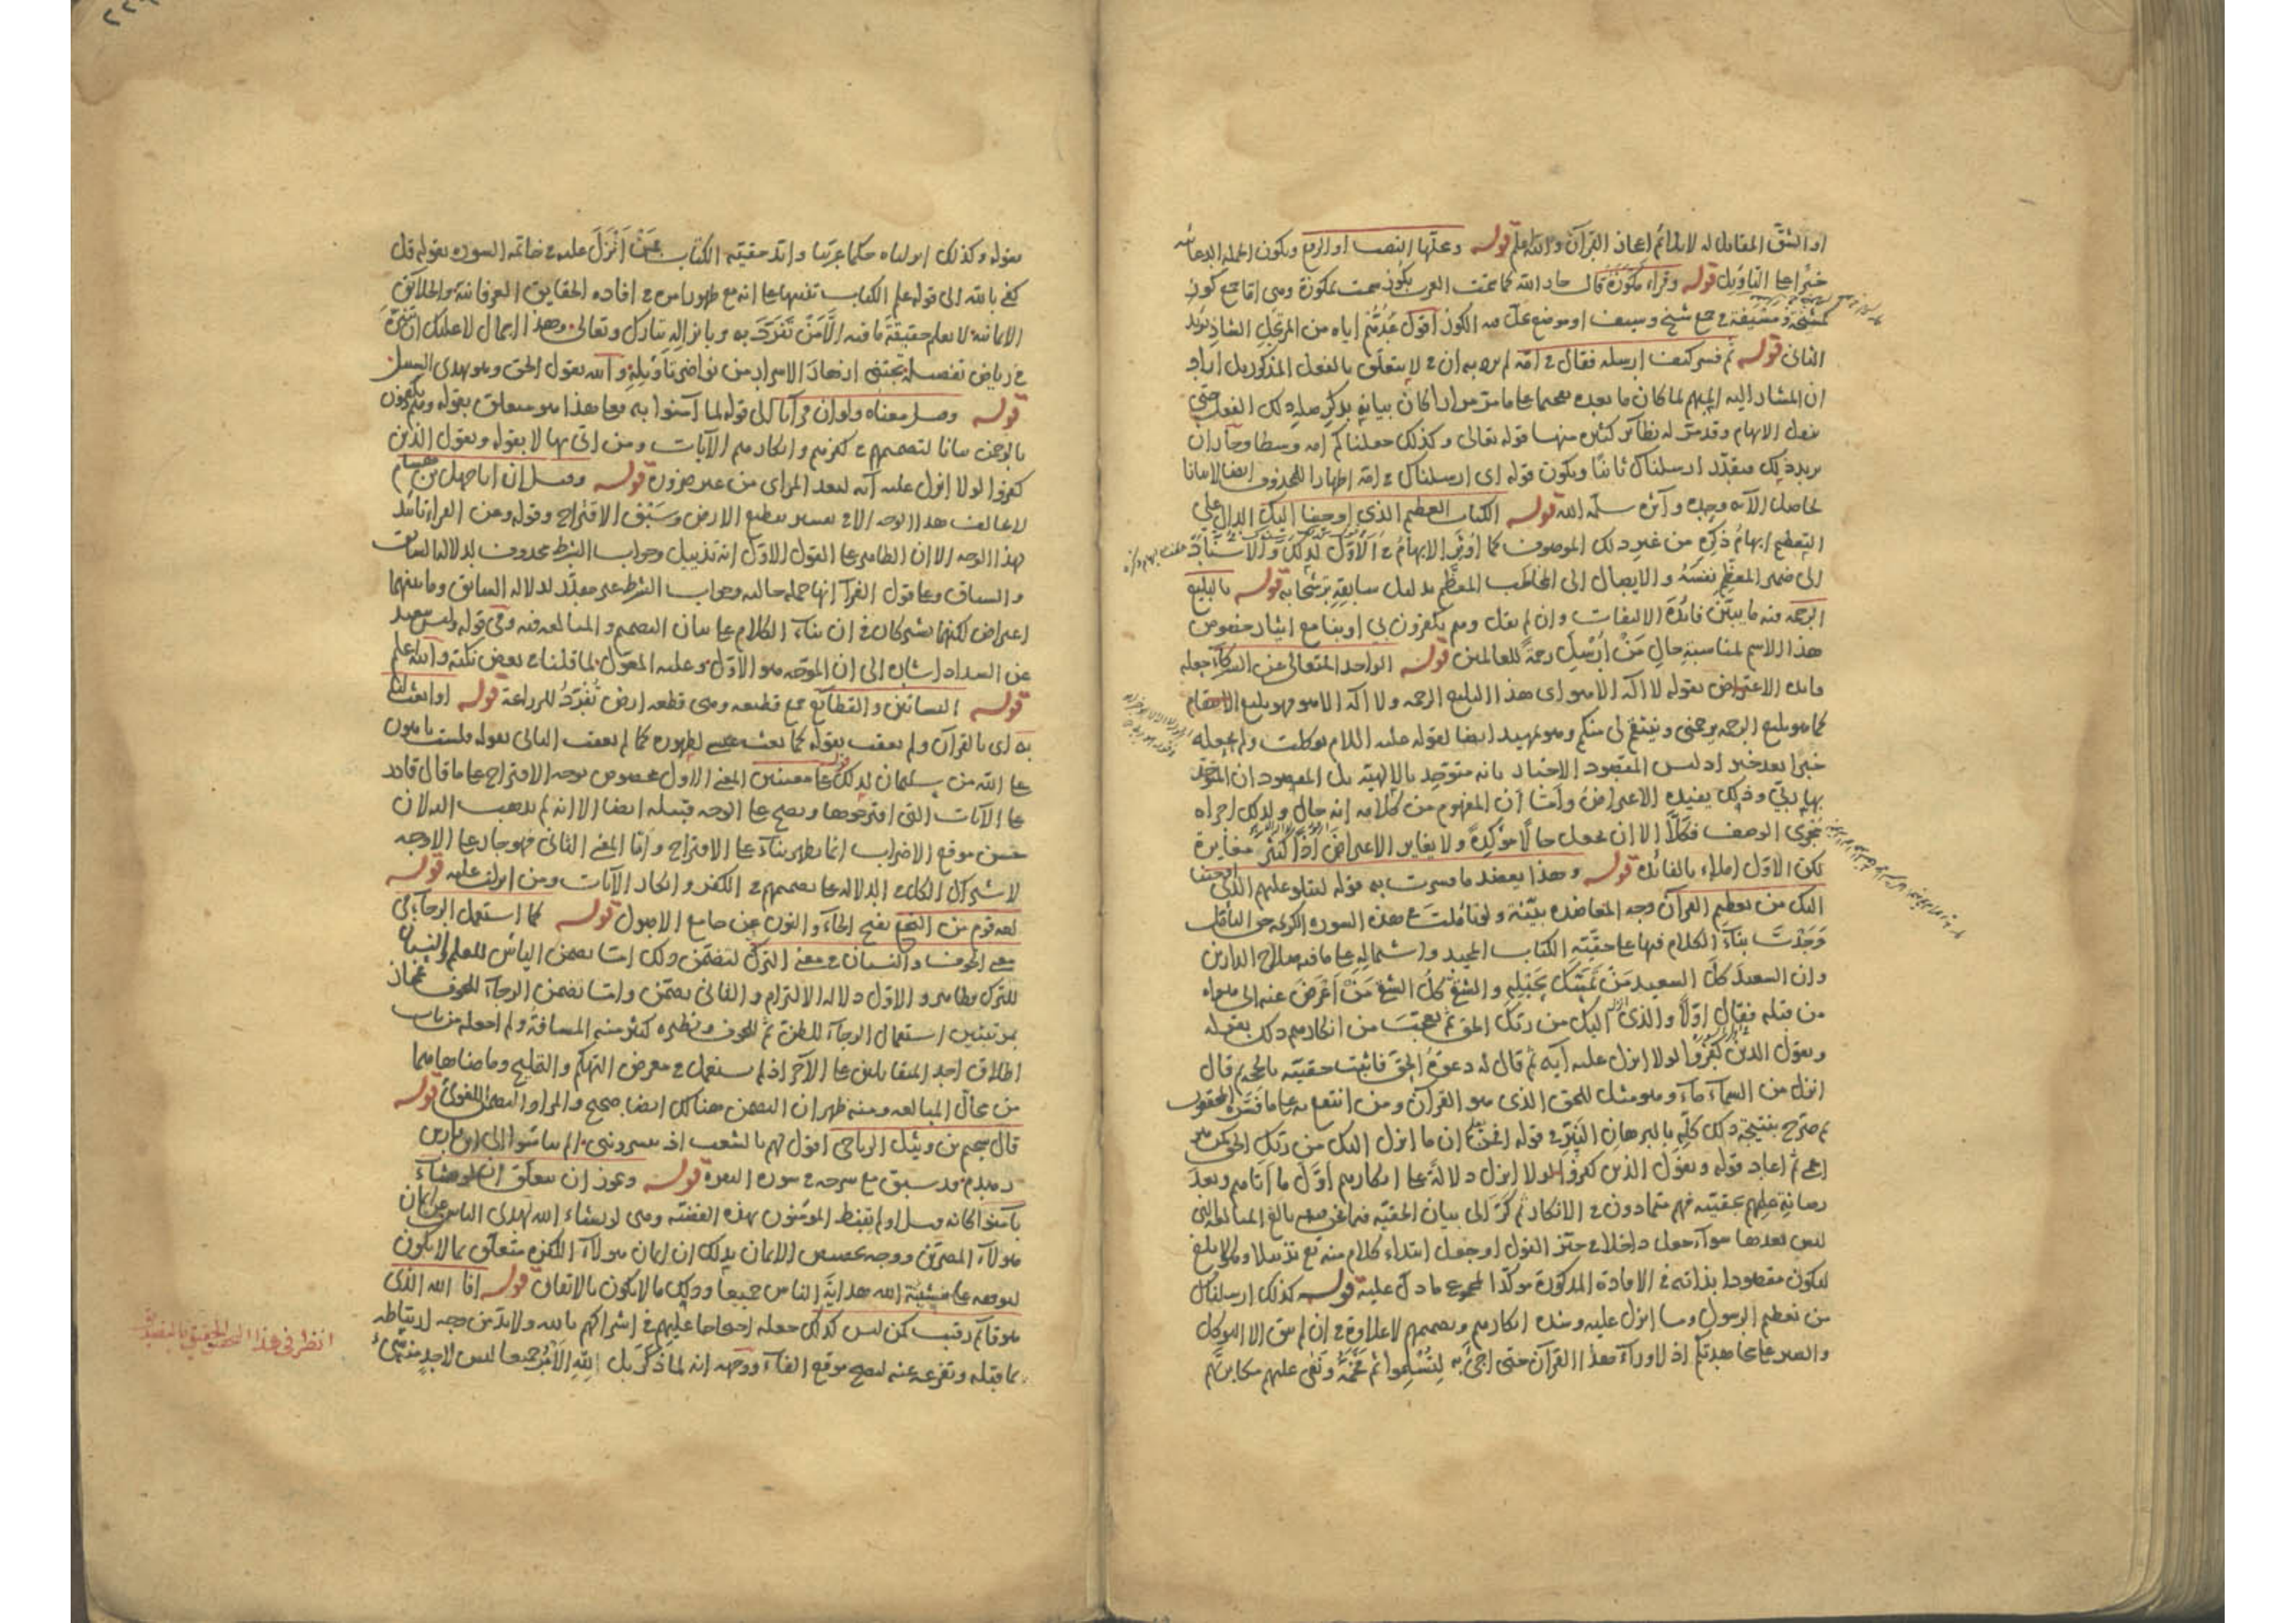 او الشق المقابل له لا يلائم اعجاز القرآن والله اعلم قوله وعملها النصب او الرفع ويكون الجملة الدعائية
خبرا على التاويل قوله وقراءة مكوزة قال جار الله كما سمت العرب بكوز سمت بمكوزة ومى اما جمع كوز
كمشيخة ومسيفة في جمع شيخ وسيف او موضع
الثاني قوله ثم فسر كيف ارسله فقال في امة لم يرد به ان في لا يتعلق بالفعل المذكور بل اراد
ان المشار اليه المبهم لما كان ما بعده تفخيما على ما مر مرارا كان بيانه بذكر صلة ذلك الفعل حتى
يزول الابهام وقد مر له نظائر كثيرة منها قوله تعالى وكذلك جعلناكم امة وسطا وجاز ان
يريد ذلك فيقدر ارسلناك ثانيا ويكون قوله اى ارسلناك في امة اظهارا للمحذوف ايضا لا بيانا
لحاصل الآية وجده وآثره سلمه الله قوله الكتاب العظيم الذي اوحينا اليك الدال على
التعظيم ابهام ذكره من غير ذلك الموصوف كما اوثر الابهام في الاول لذلك والاسناد
الى ضمير المعظم نفسه والايصال الى المخاطب المعظم بدليل سابقة ترشحا به قوله بالبليغ
الرحمة فيه ما يبين فائدة الالتفات وان لم يقل وهم يكفرون بى او بنا مع ايثار خصوص
هذا الاسم لمناسبة حال من ارسل رحمة للعالمين قوله الواحد المتعالى عن الشركاء جعله
فائدة الاعتراض بقوله لا اله الا هو اى هذا البليغ الرحمة ولا اله الا هو فهو بليغ الانتقام
كما هو بليغ الرحمة يرحمنى وينتقم لى منكم وهو تمهيد ايضا لقوله عليه توكلت ولم يجعله
خبرا بعد خبر اذ ليس المقصود الاخبار بانه متوحد بالالهية بل المقصود ان المتوحد
بها ربى وذلك يفيده الاعتراض واما ان المفهوم من كلامه انه حال ولذلك اجراه
مجرى الوصف فكلا الا ان يجعل حالا مؤكدة ولا يغاير الاعتراض اذا كثير مغايرة
لكن الاول املاء بالفائدة قوله وهذا يعضد ما فسرت به قوله لتتلو عليهم الذى اوحينا
اليك من تعظيم القرآن وجه المعاضدة بينة ولو تأملت في هذه السورة الكريمة حق التأمل
وجدت بناء الكلام فيها على حقية الكتاب المجيد واشتماله على ما فيه صلاح الدارين
وان السعيد كل السعيد من تمسك بحبله والشقى كل الشقى من اعرض عنه الى هواه
من قبله فقال اولا والذى انزل اليك من ربك الحق ثم تعجب من انكارهم ذلك بقوله
ويقول الذين كفروا لولا انزل عليه آية ثم قال له دعوة الحق فاثبت حقيته بالحجة ثم قال
انزل من السماء ماء وهو مثل للحق الذى هو القرآن ومن انتفع به على ما فسره المحققون
ثم صرح بنتيجة ذلك كله بالبرهان النير في قوله افمن يعلم ان ما انزل اليك من ربك الحق كمن هو
اعمى ثم اعاد قوله ويقول الذين كفروا لولا انزل دلالة على انكارهم اول ما اتاهم وبعد
رصانة علمهم بحقيته فهم متمادون في الانكار ثم كر الى بيان الحقية فيما نحن فيه بالغ المبالغة التى
ليس بعدها سواء جعل داخلا في حيز القول او جعل ابتداء كلام منه تع تذييلا
ليكون مقصودا بذاته في الافادة المذكورة مؤكدا لمجموع ما دل عليه قوله كذلك ارسلناك
من تعظيم الرسول وما انزل عليه وشدة انكارهم وتصميمهم لا علاوة في ان لم يبق الا التوكل
والصبر على مجاهدتكم اذ لا وراء هذا القرآن حتى اجئ به لتسلموا ثم فخمه ونعى عليهم مكابرتهم
بقوله وكذلك انزلناه حكما عربيا وايد حقيقة الكتاب بمن انزل عليه في خاتمة السورة بقوله قل
كفى بالله الى قوله علم الكتاب تنبيها على انه مع ظهور امره في افادة الحقايق العرفانية والخلائق
الايمانية لا يعلم حقيقة ما فيه الا من تفرد به وبانزاله تبارك وتعالى وهذا اجمال لا عليك ان تتنزه
في رياض تفصيله تجتنى ازهار الاسرار من نواضر تأويله والله يقول الحق وهو يهدى السبيل
قوله وقيل معناه ولو ان قرآنا الى قوله لما آمنوا به فعلى هذا هو متعلق بقوله وهم يكفرون
بالرحمن بيانا لتصميمهم في كفرهم وانكارهم الآيات ومن اتى بها لا بقوله ويقول الذين
كفروا لولا انزل عليه آية لبعد المرمى من غير ضرورة قوله وقيل ان ابا جهل بن هشام
لا يخالف هذا الوجه الا في تفسير تقطيع الارض وسبق الاقتراح وقوله وعن الفراء تأييد
لهذا الوجه الا ان الظاهر على القول الاول انه تذييل وجواب الشرط محذوف لدلالة السابق
والسياق وعلى قول الفراء انها جملة حالية وجواب الشرط غير مقدر لدلالة السابق وما بينهما
اعتراض لكنهما يشتركان في ان بناء الكلام على بيان التصميم والمبالغة فيه وفى قوله وليس ببعيد
عن السداد اشارة الى ان الموجه هو الاول وعليه المعول لما قلنا في بعض نكته والله اعلم
قوله البساتين والقطائع جمع قطيعة وهى قطعة ارض تفرز للزراعة قوله او ابعث لنا
به اى بالقرآن ولم يعقب بقوله كما بعث عيسى لظهوره كما لم يعقب التالى بقوله فلست باهون
على الله من سليمان لذلك قوله على معنيين المعنى الاول مخصوص بوجه الاقتراح على ما قال قادر
على الآيات التى اقترحوها ويصح على الوجه قبيله ايضا الا انه لم يذهب اليه لان
حسن موقع الاضراب انما يظهر بناء على الاقتراح واما المعنى الثانى فهو جار على الاوجه
لاشتراك الكل في الدلالة على تصميمهم في الكفر وانكار الآيات ومن انزلت عليه قوله
لغة قوم من النخع بفتح الخاء والنون عن جامع الاصول قوله كما استعمل الرجاء في
معنى الخوف والنسيان في معنى الترك لتضمن ذلك اما تضمن اليأس للعلم والنسيان
للترك فظاهر والاول دلالة الالتزام والثانى تضمن واما تضمن الرجاء للخوف فمجاز
بمرتبتين استعمال الرجاء للظن ثم للخوف ونظيره كثير منه المسافة ولم اجعله من باب
اطلاق احد المتقابلين على الآخر اذ لم يستعمل في معرض التهكم والتمليح وما ضاهاهما
من محال المبالغة ومنه ظهر ان التضمن هنالك ايضا صحيح والمراد التضمن اللغوى قوله
قال سحيم بن وثيل الرياحى اقول لهم بالشعب اذ ييسروننى الم تيأسوا انى ابن فارس
زهدم قد سبق مع شرحه في سورة البقرة قوله ويجوز ان يتعلق ان لو يشاء
بآمنوا كانه قيل اولم يقنط المؤمنون بهذه القضية وهى لو يشاء الله لهدى الناس عن ايمان
هؤلاء المصرين ووجه تخصيص الايمان بذلك ان ايمان هؤلاء الكفرة متعلق بما لا يكون
لتوقفه على مشيئة الله هداية الناس جميعا وذلك مالا يكون بالاتفاق قوله افا الله الذى
هو قائم رقيب كمن ليس كذلك جعله احتجاجا عليهم في اشراكهم بالله ولا بد من وجه ارتباطه
بما قبله وتفرعه عنه ليصح موقع الفاء ووجهه انه لما ذكر بل لله الامر جميعا ليس لاحد منه شئ
انظر فى هذا التحقيق